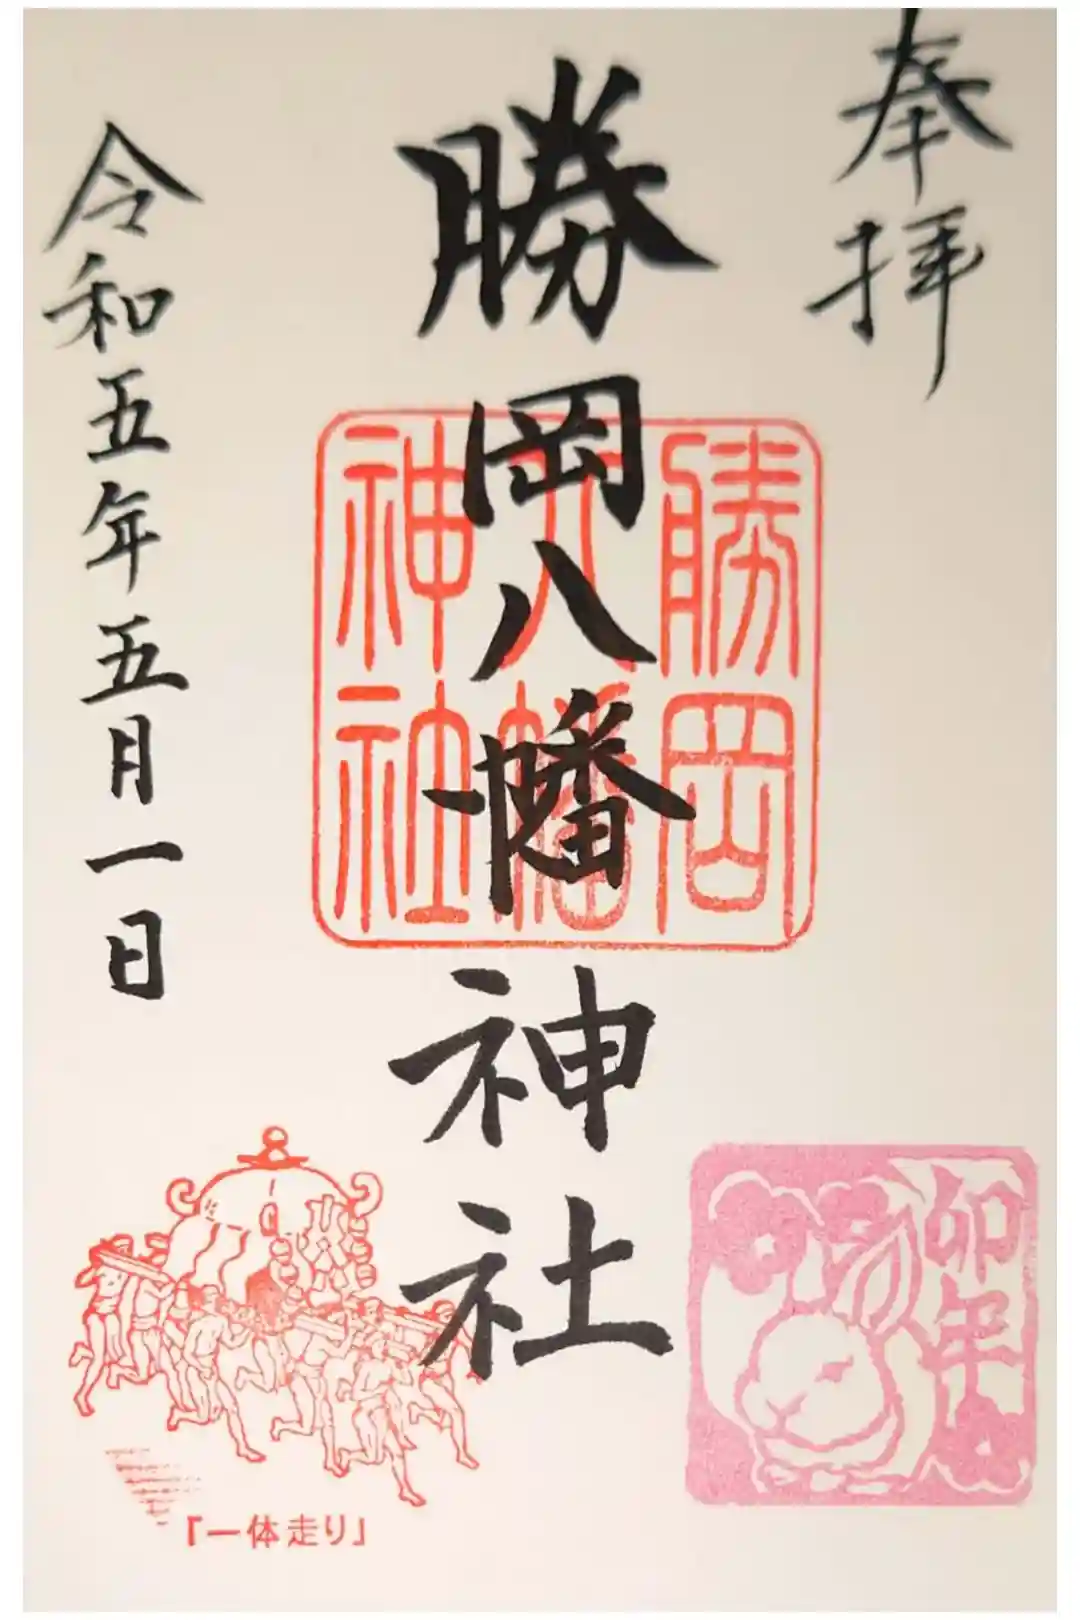 奉拝
勝岡八幡神社
勝岡
八幡
神社
令和五年五月一日
卯年
『一体走り』